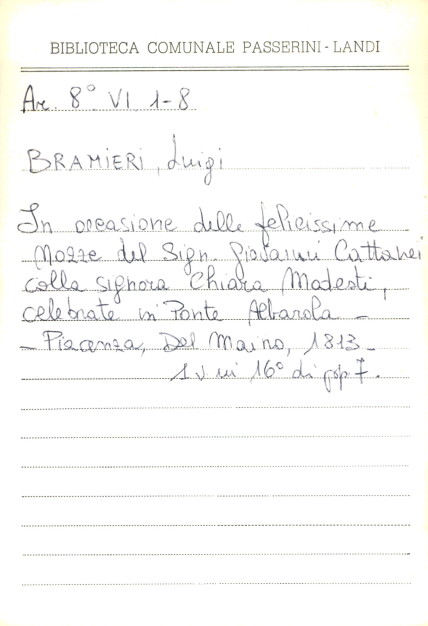 BIBLIOTECA COMUNALE PASSERINI - LANDI
Ar. 8° VI 1-8
BRAMIERI, Luigi
In occasione delle felicissime
Nozze del Sign. Giovanni Cattanei
colla signora Chiara Modesti,
celebrate in Ponte Albarola -
- Piacenza, Del Maino, 1813 -
1 v in 16° di pp 7.